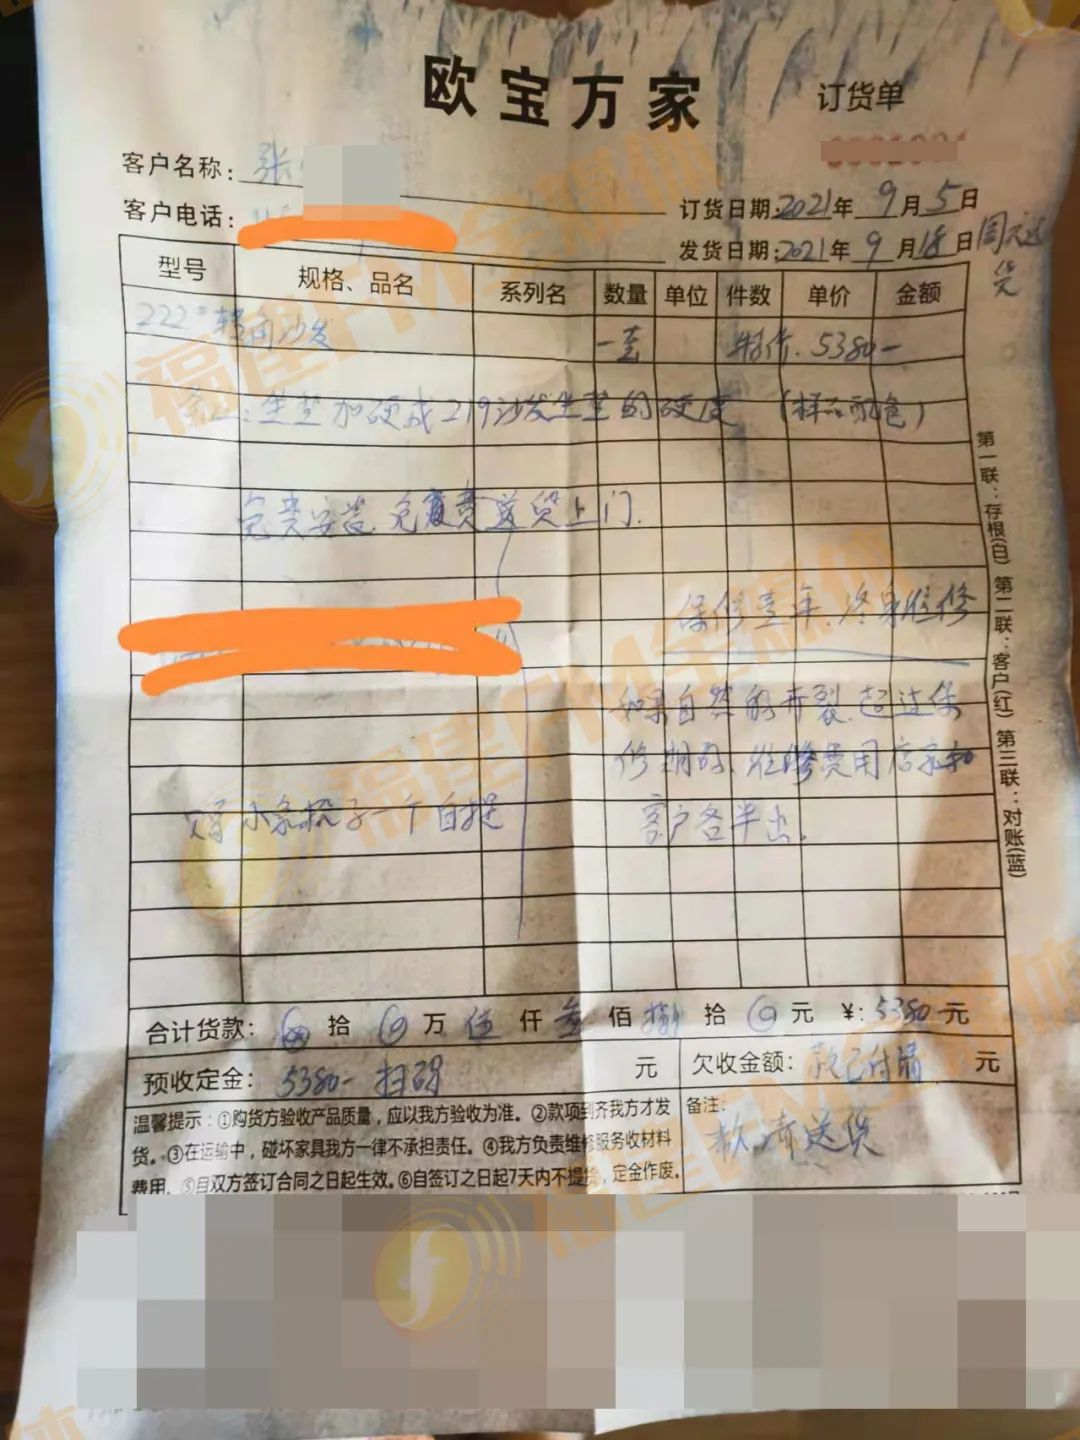 欧宝万家
订货单
客户名称: 张
客户电话:
订货日期: 2021年 9月 5日
发货日期: 2021年 9月 18日
型号 规格、品名 系列名 数量 单位 件数 单价 金额
222# 转角沙发 一套 特价. 5380-
坐垫加硬成219沙发坐垫的硬度 (样品配色)
免费安装 免费送货上门.
保修壹年. 终身维修
如果自然的开裂. 超过保
修期的. 维修费用店家和
客户各半出.
小条机子一个自提
第一联:存根(白) 第二联:客户(红) 第三联:对账(蓝)
合计货款: 拾 万 伍仟 叁佰 捌拾 元 ¥: 5380-元
预收定金: 5380- 扫码 元 欠收金额: 款已付清 元
温馨提示:①购货方验收产品质量,应以我方验收为准。②款项到齐我方才发
货。③在运输中,碰坏家具我方一律不承担责任。④我方负责维修服务收材料
费用。⑤自双方签订合同之日起生效。⑥自签订之日起7天内不提货,定金作废。
备注:
款清送货
福建FM全媒体